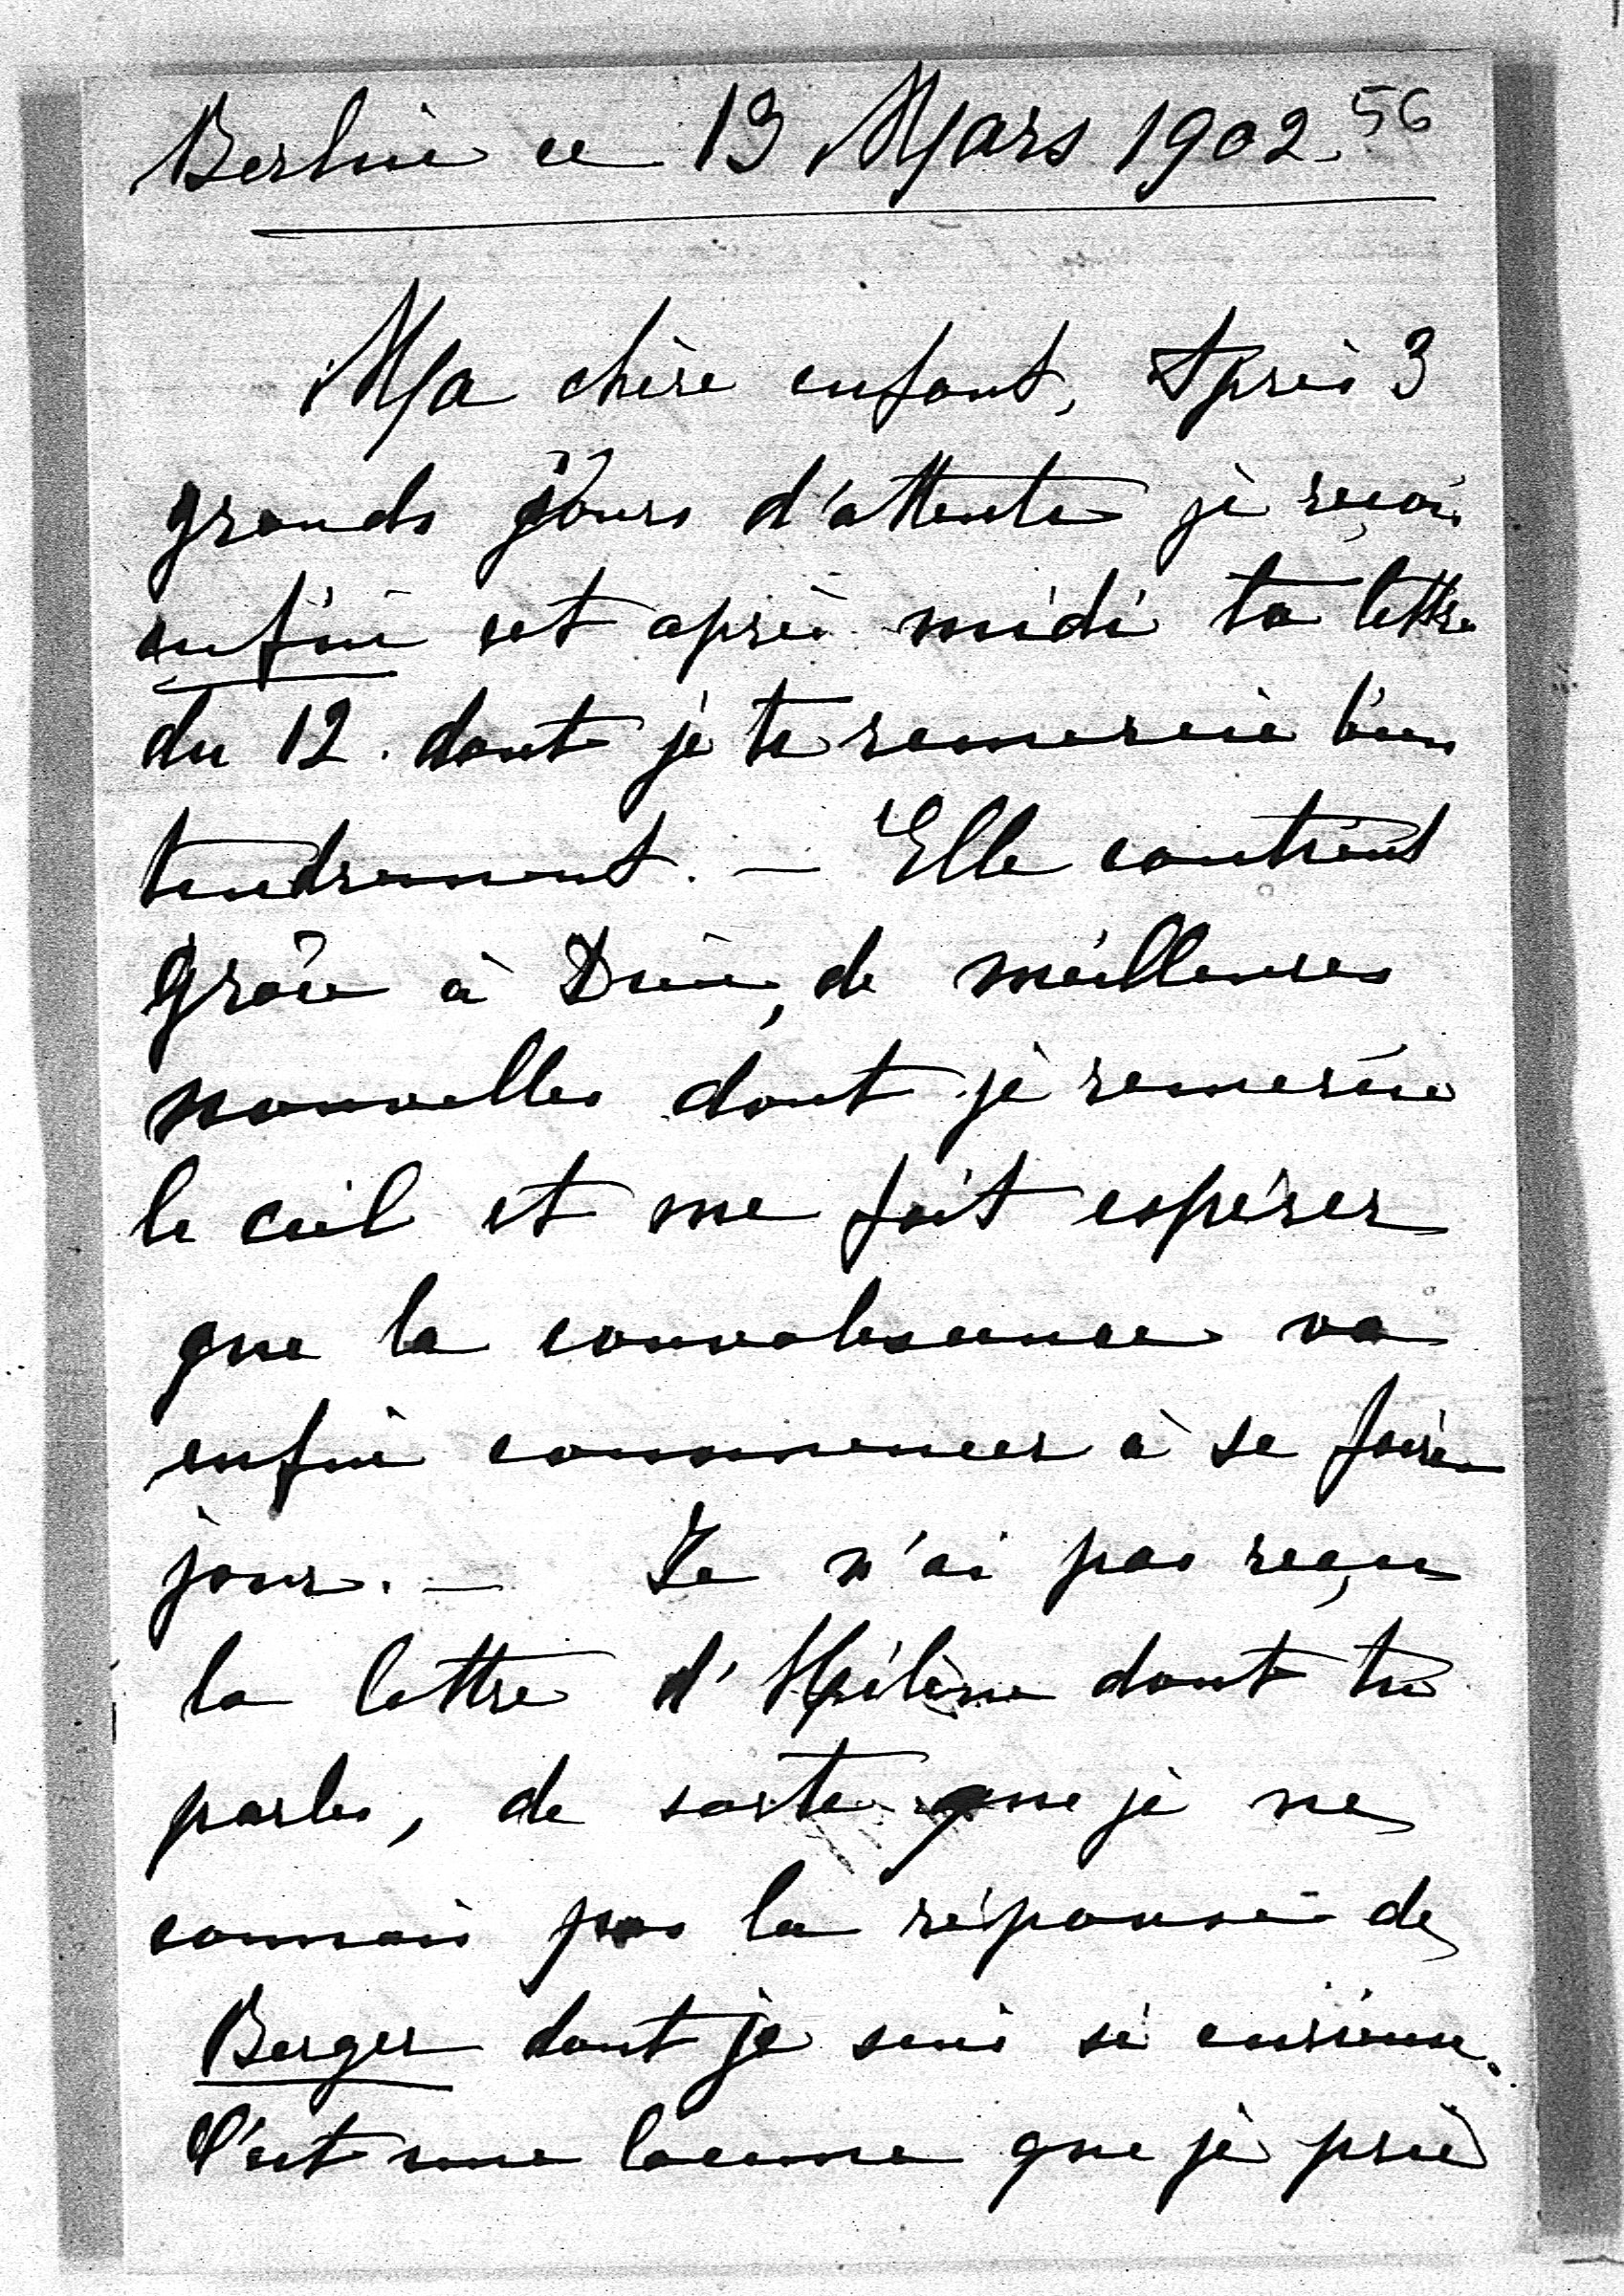 Berlin ce 13 Mars 1902. 56
Ma chère enfant, Après 3
grands jours d'attente je reçois
enfin cet après midi ta lettre
du 12. dont je te remercie bien
tendrement. — Elle contient
grâce à Dieu, de meilleures
nouvelles dont je remercie
le ciel et me fait espérer
que la convalescence va
enfin commencer à se faire
jour. — Je n'ai pas reçu
la lettre d'Hélène dont tu
parles, de sorte que je ne
connais pas la réponse de
Berger dont je suis si curieuse.
C'est une lacune que je prie